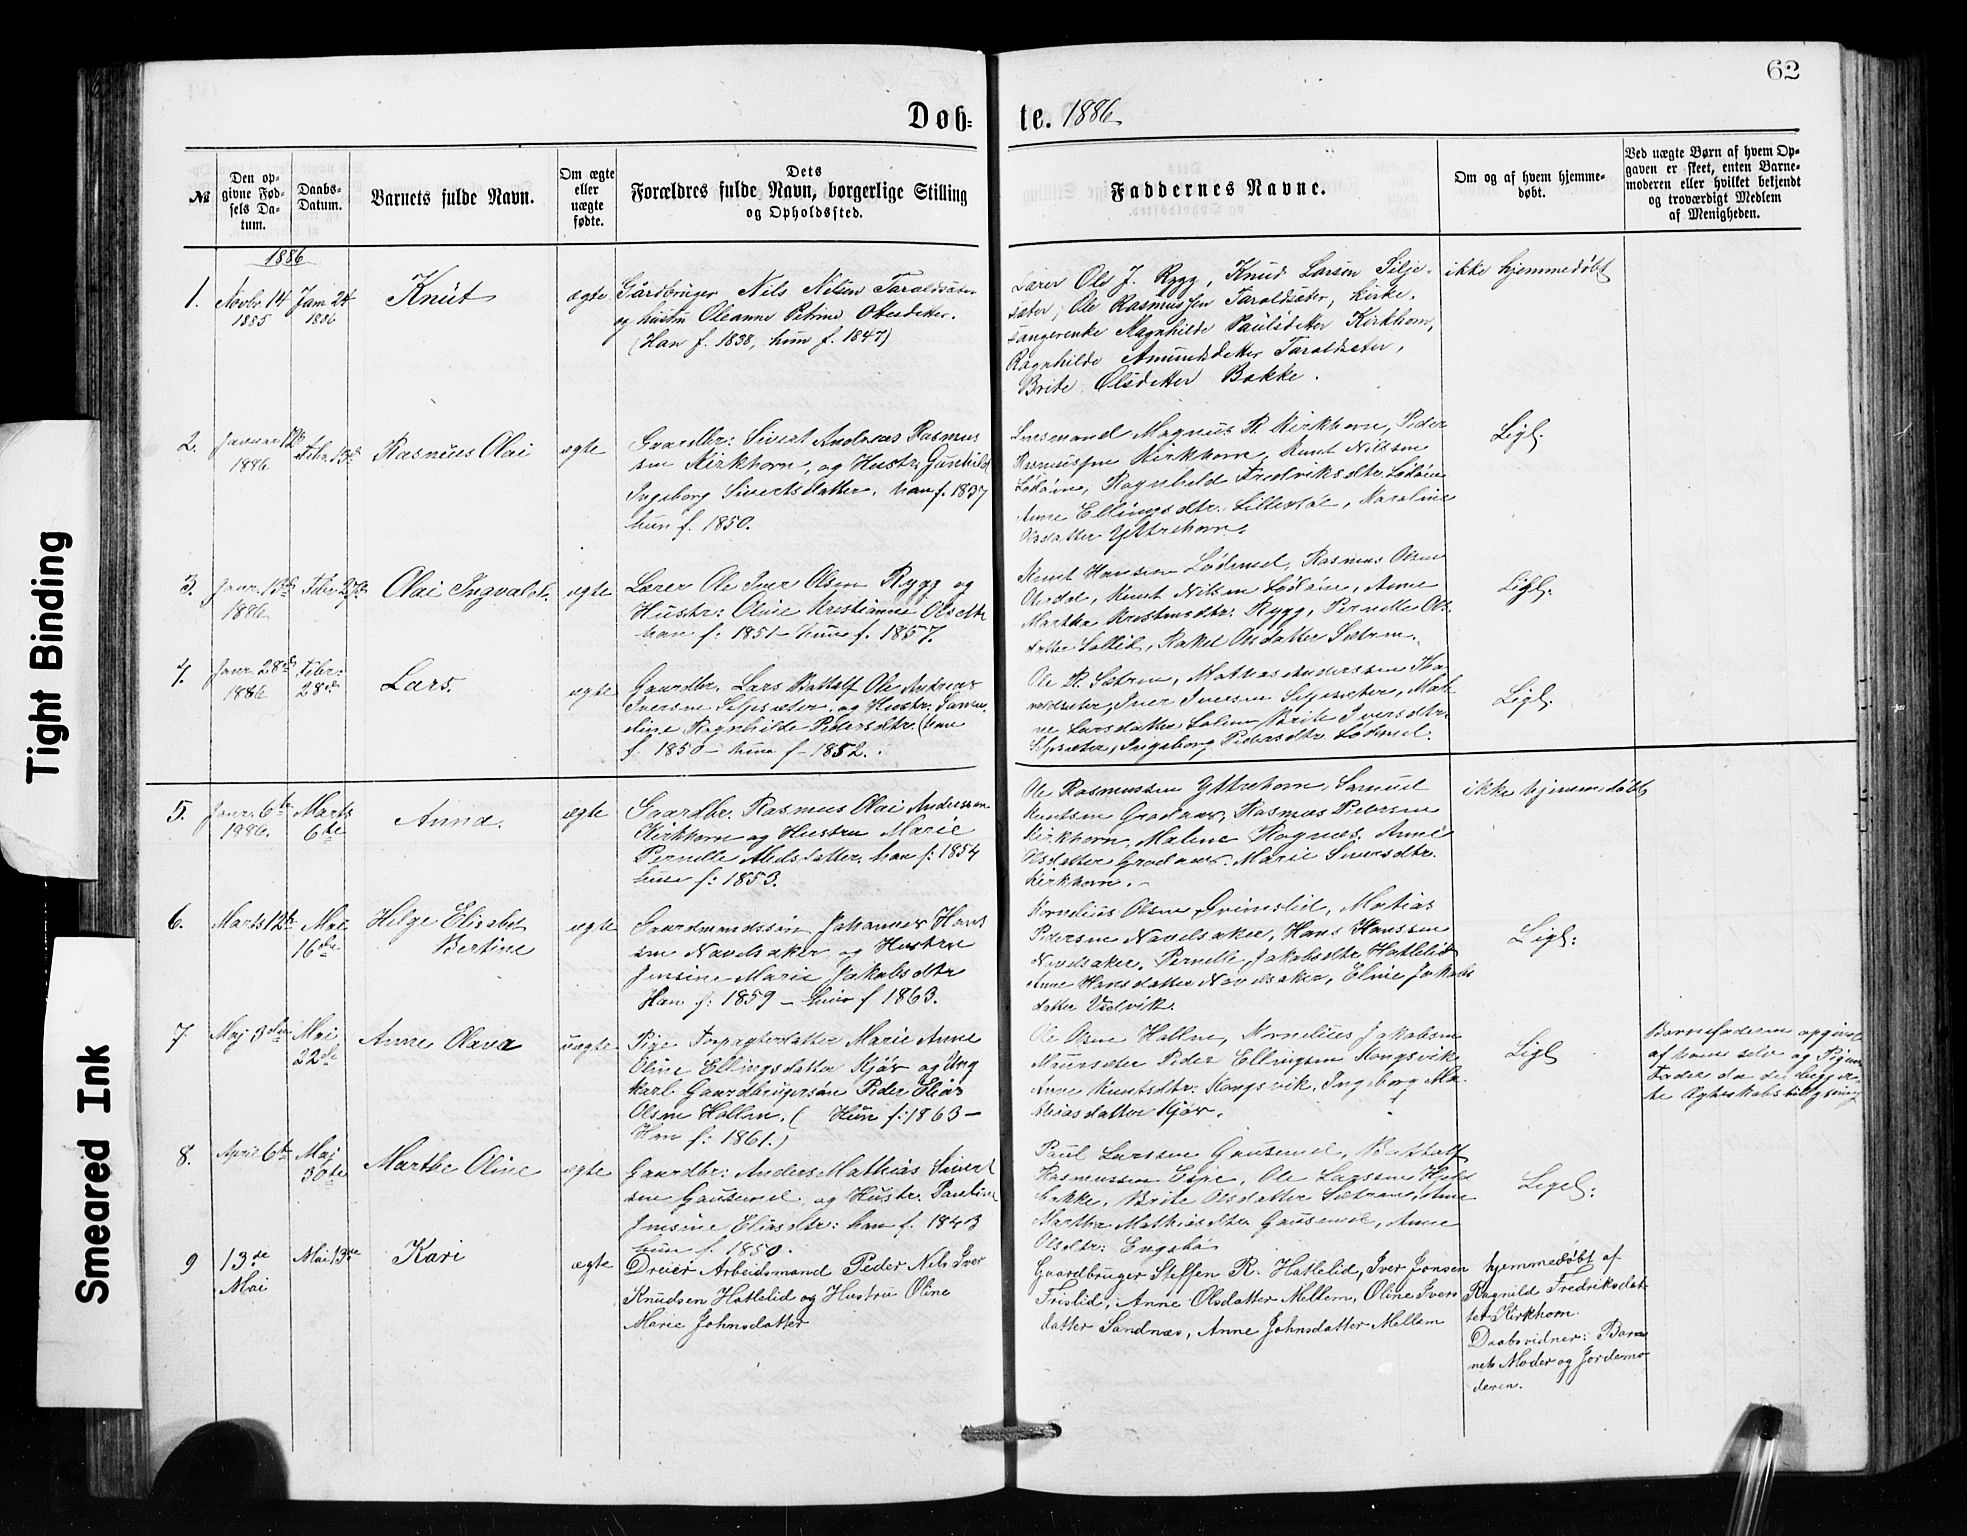 62
Døb= te. 1886
№
Den op-
givne Fød-
sels Da-
tum.
Daabs-
Datum.
Barnets fulde Navn.
Om ægte
eller
uægte
fødte.
Dets
Forældres fulde Navn, borgerlige Stilling
og Opholdssted.
Faddernes Navne.
Om og af hvem hjemme-
døbt.
Ved uægte Børn af hvem Op-
gaven er skeet, enten Barne-
moderen eller hvilket bekjendt
og troværdigt Medlem
af Menigheden.
1886
1.
Novbr. 14
1885
Janr. 24
1886
Knut
ægte
Gårdbruger Nils Nilsen Taraldsæter
og hustru Oleanne Petrine Ottesdetter.
(Han f. 1838, hun f. 1847)
Lærer Ole J. Rygg, Knud Larsen Silje-
sæter, Ole Rasmussen Taraldsæter, Kirke-
sangerenke Magnhilde Paulsdetter Kirkhorn,
Ragnhilde Amundsdetter Taraldsæter,
Brite Olsdetter Bakke.
ikke hjemmedøbt
2.
Januar 12te
1886
Febr. 13de
Rasmus Olai
ægte
Gaardbr: Sivert Andreas Rasmus
sen Kirkhorn, og Hustr. Gunhild
Ingeborg Sivertsdatter, han f. 1837
hun f. 1850.
Lensmand Magnus R. Kirkhorn, Peder
Rasmussen Kirkhorn, Knut Nilssen
Lødøen, Ragnhild Fredriksdtr. Lødøen
Anne Ellingsdtr. Lillestøl, Karoline
Olsdatter Yttrehorn.
Ligl.
3.
Janr. 13de
1886
Febr. 27de
Olai Ingvald
ægte
Lærer Ole Iver Olsen Rygg og
Hustr: Oline Kristianne Olsdtr
han f: 1851 – hun f. 1857.
Knut Hansen Lødemel, Rasmus Olsen
Knut Nilssen Lødøen, Anne
Marthe Kristensdtr: Rygg, Pernille Ols
datter Sollid, Rakel Olsdatter Sætren.
Ligl.
4.
Janr. 28de
1886
Febr:
28de
Lars.
ægte
Gaardbr. Lars Battolf Ole Andreas
Iversen Siljesæter, og Hustr. Samu-
eline Ragnhilde Pedersdtr. (han
f. 1850 – hun f. 1852.
Ole R. Sætren, Mathias Anderssen Ta
raldsæter, Iver Iversen Siljesæter, Mal-
ne Larsdatter Brite Iversdtr
Siljesæter, Ingeborg Pedersdtr Lødemel.
Ligl.
5.
Janr. 6te
1886.
Marts
6te
Anna.
ægte
Gaardbr. Rasmus Olai Anderssen
Kirkhorn og Hustru Marie
Pernille Nilsdatter, han f: 1854
hun f: 1853.
Ole Rasmussen Yttrehorn, Samuel
Knutsen Rasmus Pedersen
Kirkhorn, Malene Ragnes, Anne
Olsdatter Marie Siversdtr.
Kirkhorn. –
ikke hjemmedøbt
6.
Marts 12te
Mai
16de
Helge Elisabet
Bertine
ægte
Gaardmandssøn Johannes Hans
sen Navelsaker og Hustru
Jensine Marie Jakobsdtr
Han f: 1859 – hun f 1863.
Kornelius Olsen Grimslid, Matias
Pedersen Navelsaker, Hans Hanssen
Navelsaker, Pernille Jakobsdtr Hatlelid
Anne Hansdatter Navelsaker, Eline Jakobs
datter Vedvik.
Ligl:
7
Maj 3die
Mai
22de
Anne Olava
uægte
Pige Forpagterdatter Marie Anne
Oline Ellingsdatter Kjøs og Ung
karl Gaardbrugersøn Peder Elias
Olsen Hallen, ( Hun f: 1863 –
Han f: 1861.)
Ole Olsen Hallen, Kornelius Jakobsen
Peder Ellingsen Kongsvik
Anne Knutsdtr: Kongsvik, Ingeborg Ma-
thiasdatter Kjøs.
Ligl
Barnefaderen opgivet
af ham selv og Pigens
Fader da de begjær-
te Ægteskabstillysning
8.
April 6te
Maj
30te
Marthe Oline
ægte
Gaardbr: Anders Mathias Sivert
sen Gausemel, og Hustr. Pauline
Jensine Eliasdtr: han f. 1843
hun f. 1850.
Paul Larssen Gausemel, Battolf
Rasmussen Espe, Ole Larssen Hjel
bakke, Brite Olsdatter Sætrene, Anne
Marthe Mathiasdtr Gausemel, Anne
Olsdtr: Engebø
Ligel:
9
13de
Mai
Mai 13de
Kari
ægte
Dreier Arbeidsmand Peder Nils Iver
Knudsen Hatlelid og Hustru Oline
Marie Johnsdatter
Gaardbruger Steffen R. Hatlelid, Iver Jonsen
Frislid, Anne Olsdatter Mellem, Oline Ivers
datter Sandnæs, Anne Johnsdatter Mellem
hjemmedøbt af
Ragnild Fredriksdat-
ter Kirkhorn.
Daabsvidner: Bar-
nets Moder og Jordemo-
deren.
Tight Binding
Smeared Ink